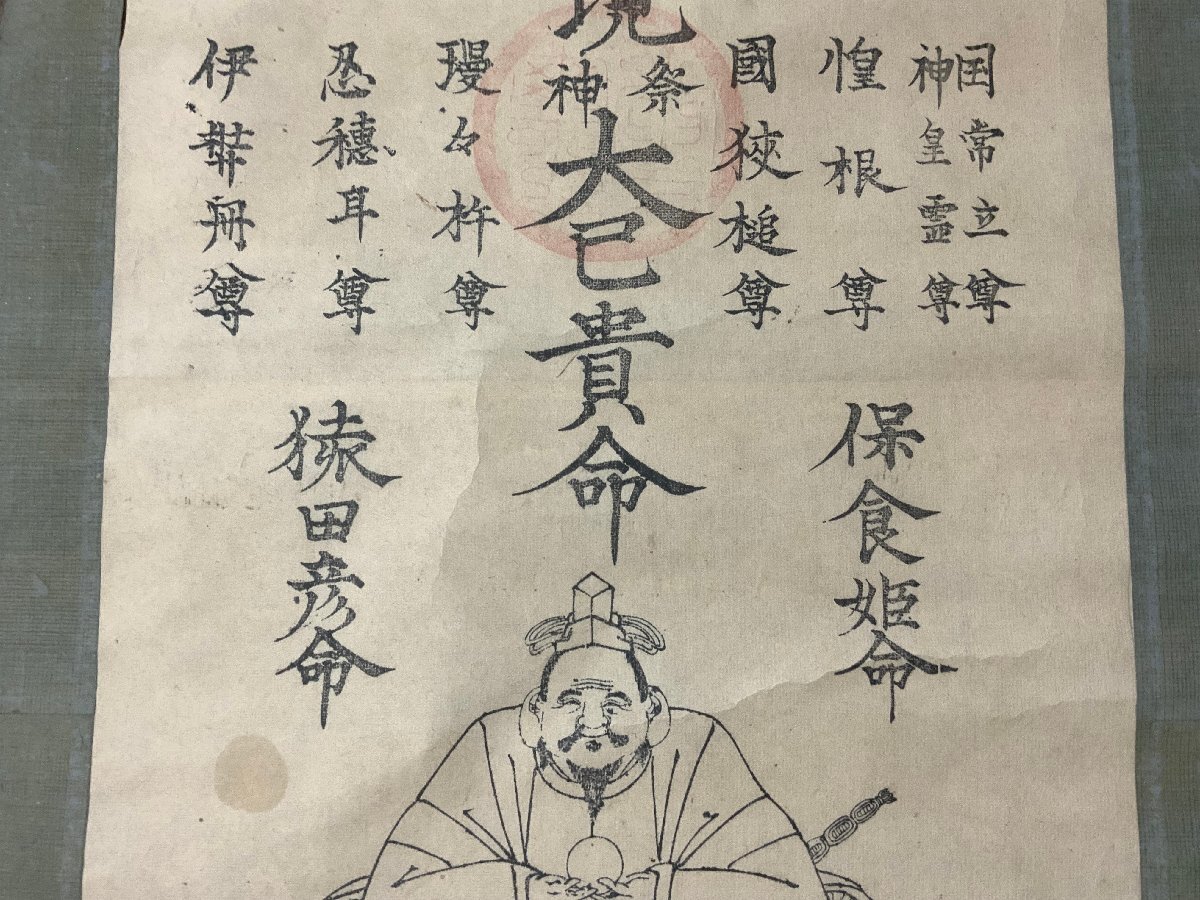 国常立尊
神皇霊尊
惶根尊
國狹槌尊
祭神
大己貴命
瓊々杵尊
忍穗耳尊
伊弉冊尊
保食姫命
猿田彦命